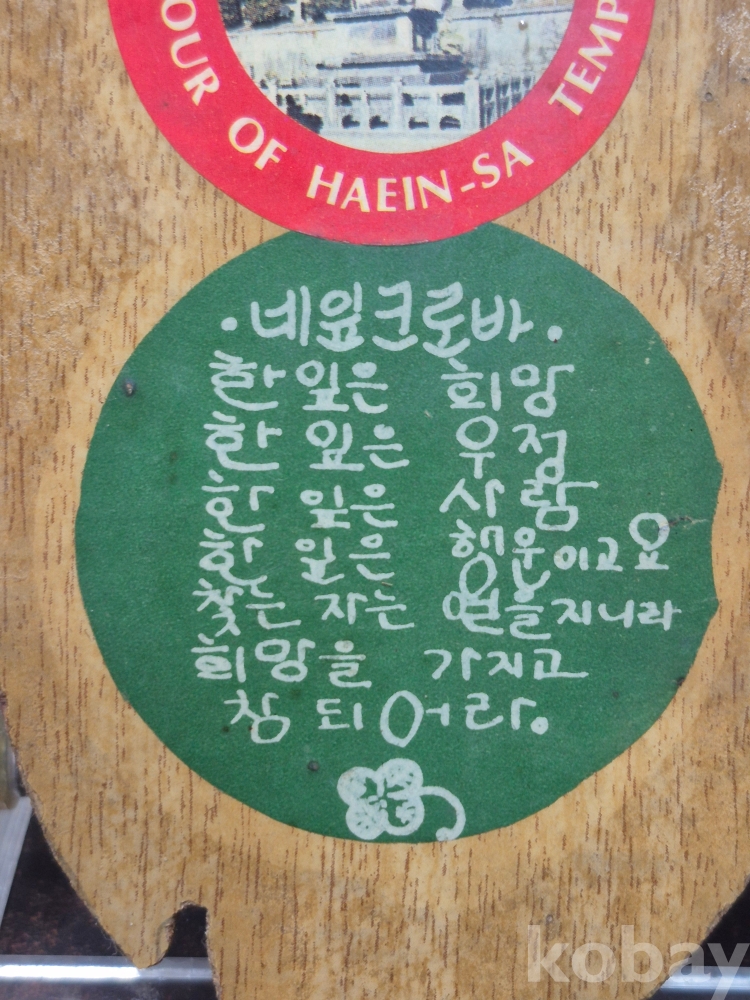 OUR OF HAEIN-SA TEMP
·네잎크로바·
한 잎은 희망
한 잎은 우정
한 잎은 사랑
한 잎은 행운이고요
찾는 자는 얻을지니라
희망을 가지고
창되어라.
kobay